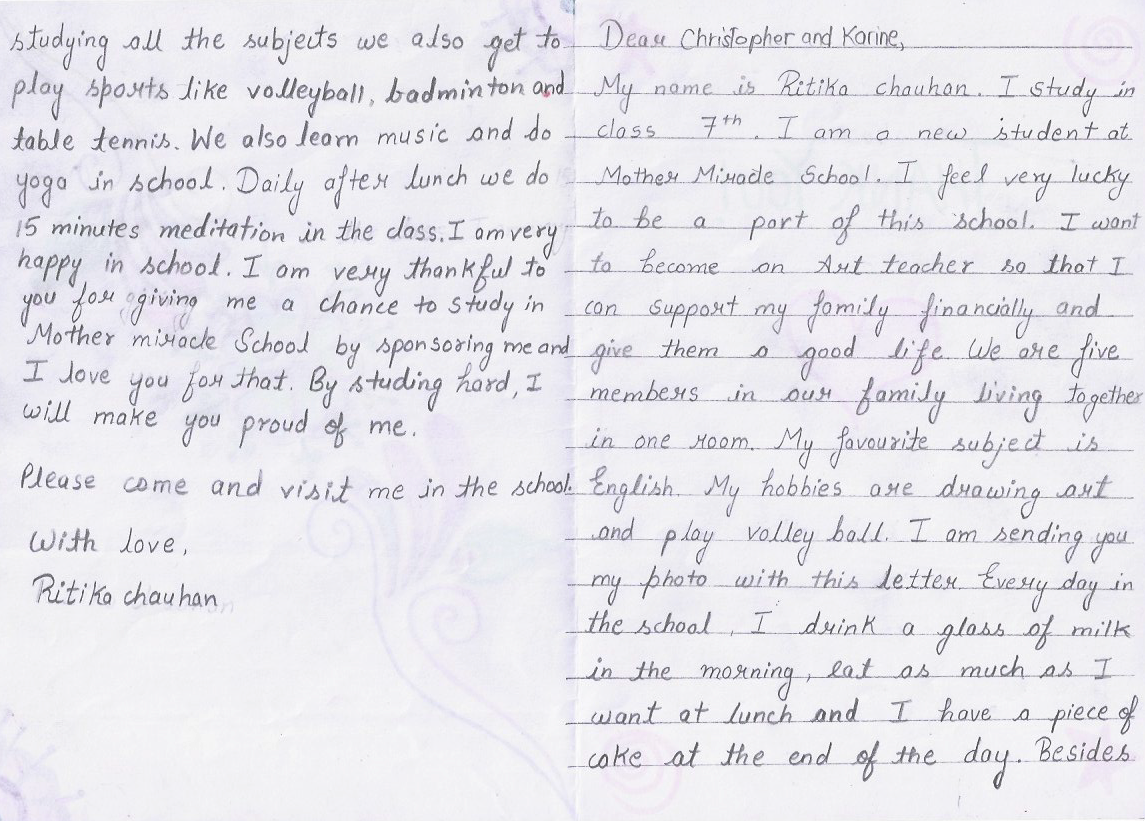 Dear Christopher and Karine,
My name is Ritika chauhan. I study in
class 7th. I am a new student at
Mother Miracle School. I feel very lucky
to be a part of this school. I want
to become an Art teacher so that I
can support my family financially and
give them a good life We are five
members in our family living together
in one room. My favourite subject is
English. My hobbies are drawing art
and play volley ball. I am sending you
my photo with this letter. Every day in
the school, I drink a glass of milk
in the morning, eat as much as I
want at lunch and I have a piece of
cake at the end of the day. Besides
studying all the subjects we also get to
play sports like volleyball, badminton and
table tennis. We also learn music and do
yoga in school. Daily after lunch we do
15 minutes meditation in the class. I am very
happy in school. I am very thankful to
you for giving me a chance to study in
Mother miracle School by sponsoring me and
I love you for that. By studing hard, I
will make you proud of me.
Please come and visit me in the school.
With love,
Ritika chauhan